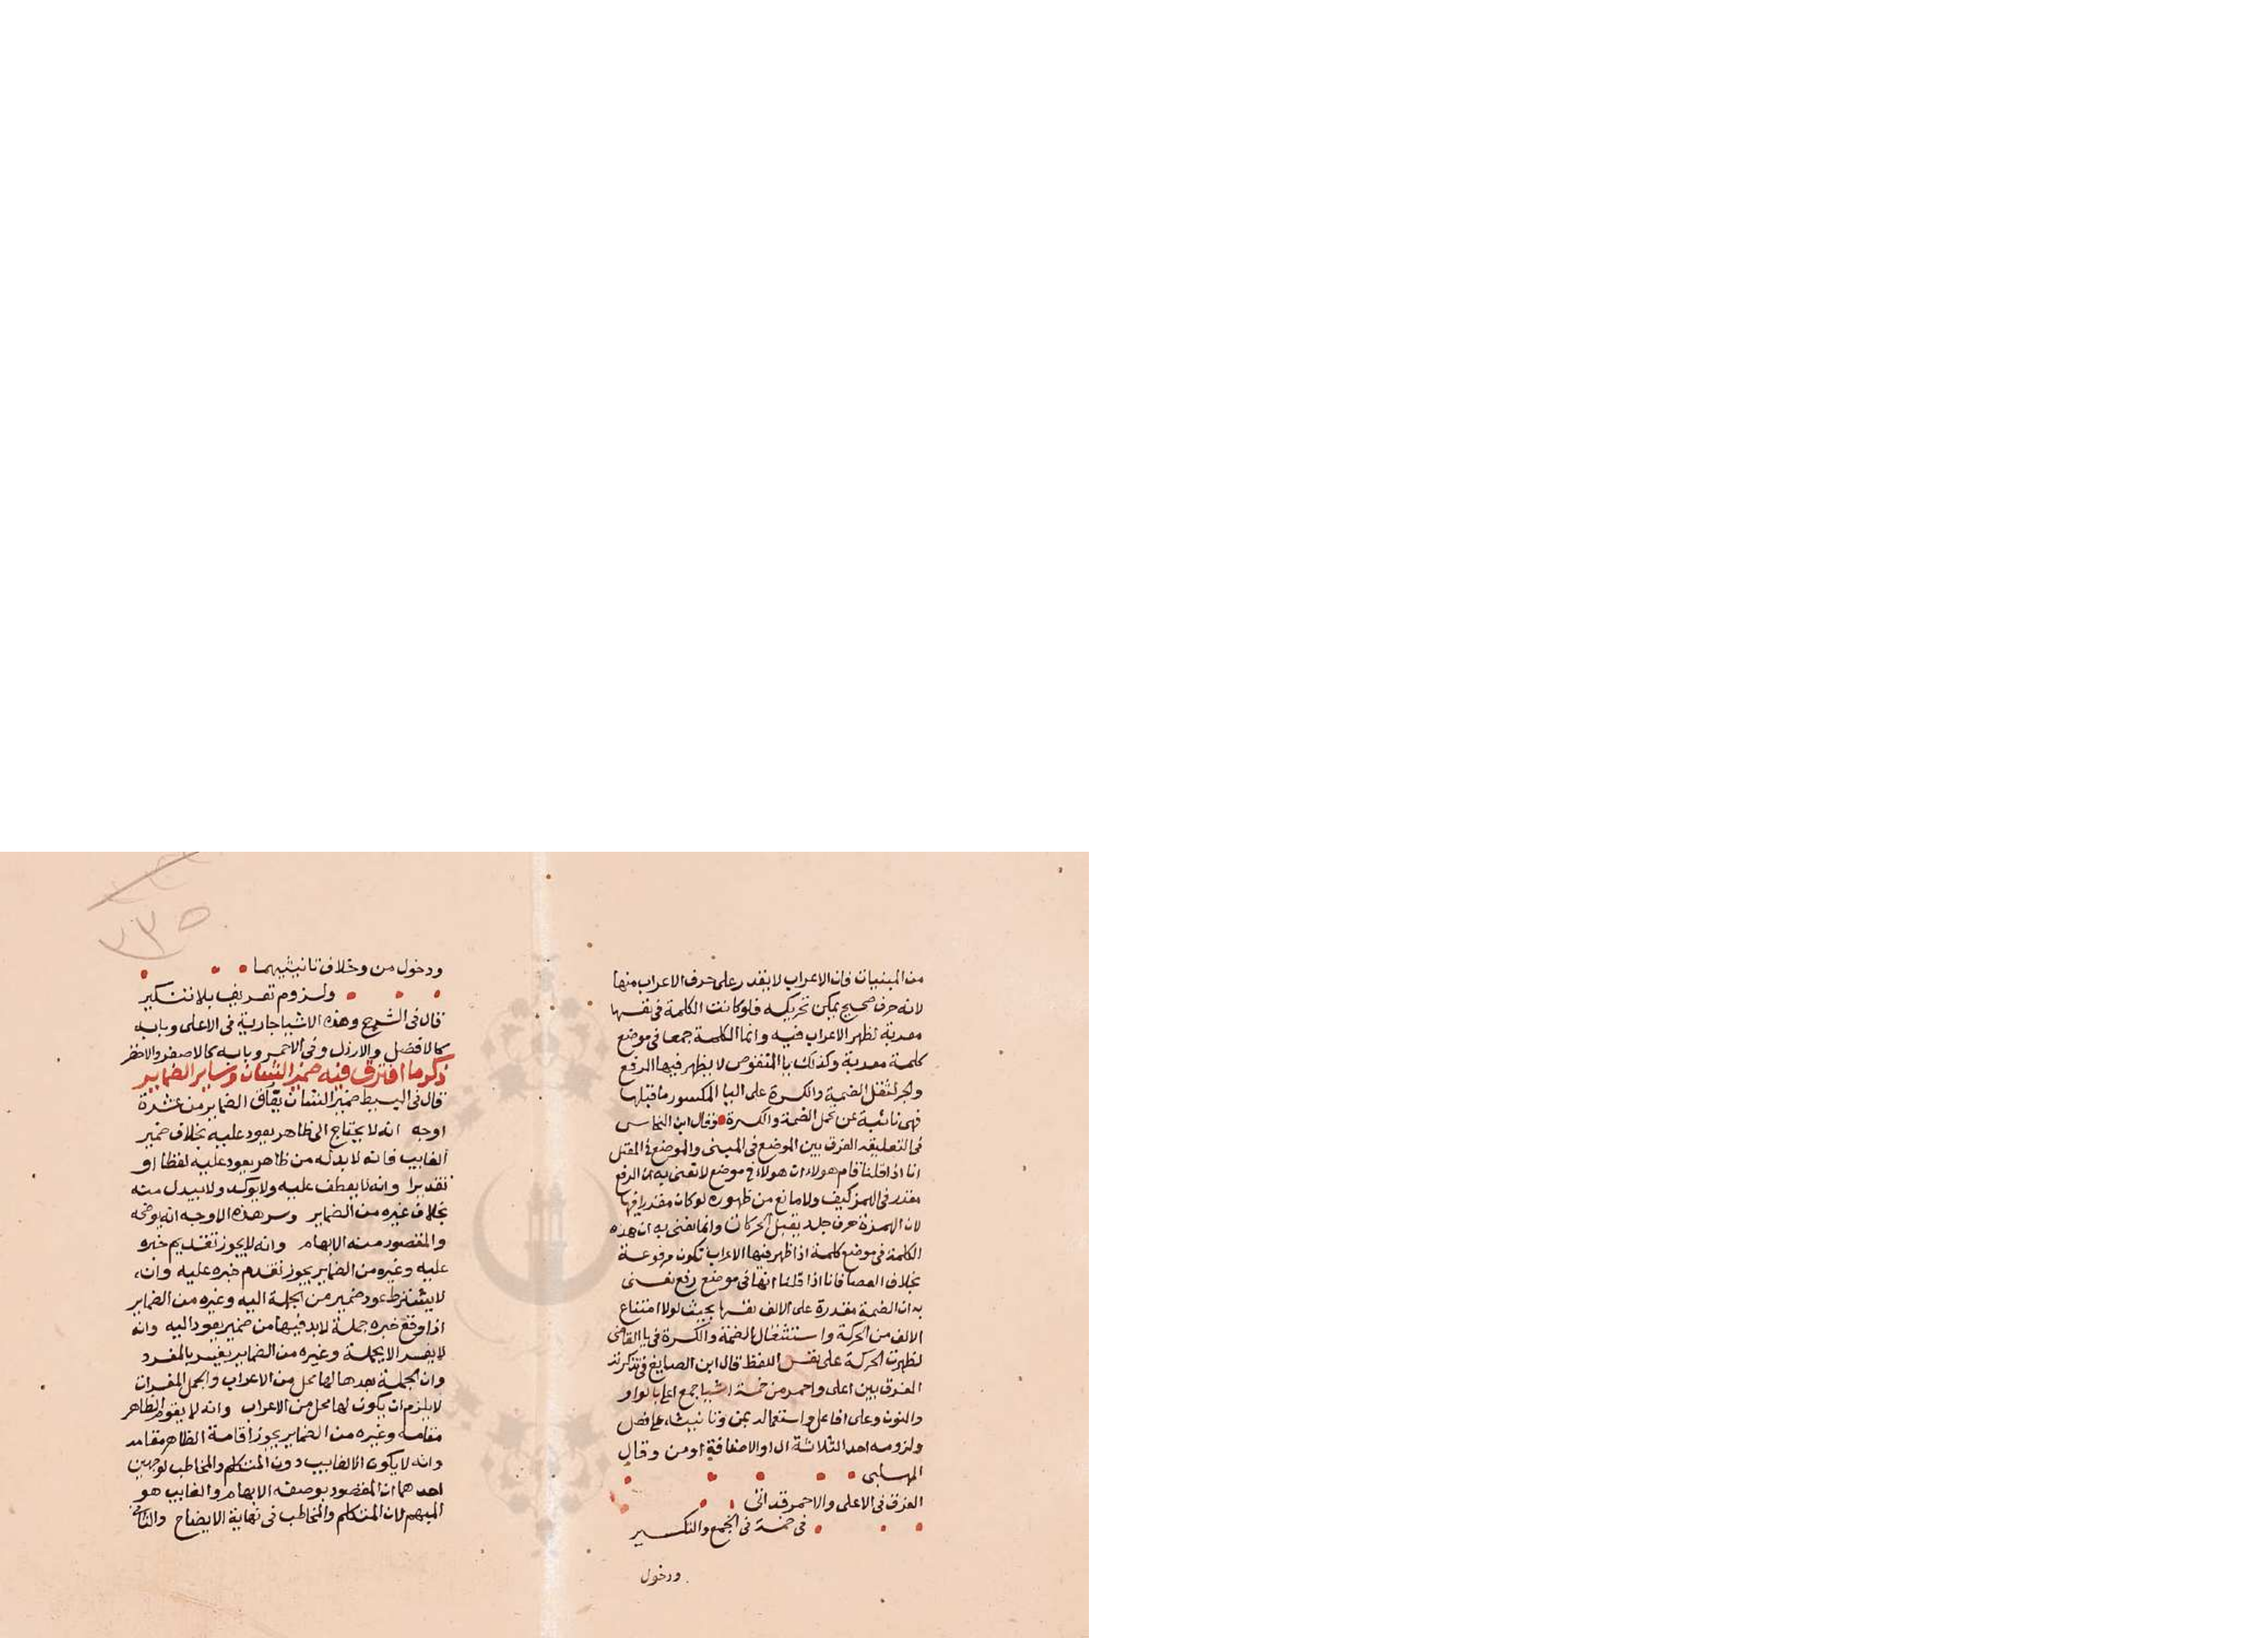 من المبنيات فان الاعراب لا يقدر على حرف الاعراب منها
لانه حرف صحيح يمكن تحريكه فلو كانت الكلمة في نفسها
معربة لظهر الاعراب فيه وانما الكلمة جمعا في موضع
كلمة معربة وكذلك يا المنقوص لا يظهر فيها الرفع
والجر لثقل الضمة والكسرة على اليا المكسور ما قبلها
فهي نائبة عن تحمل الضمة والكسرة وقال ابن النحاس
في التعليقه الفرق بين الموضع في المبنى والموضع في المعتل
انا اذا قلنا قام هولاء ان هولاء في موضع لا نعنى به ان الرفع
مقدر في الهمز كيف ولا مانع من ظهوره لو كان مقدرا فيها
لان الهمزة حرف جلد يقبل الحركات وانما نعنى به ان هذه
الكلمة في موضع كلمة اذا ظهر فيها الاعراب تكون مرفوعة
بخلاف العصا فانا اذا قلنا انها في موضع رفع نعنى
به ان الضمة مقدرة على الالف نفسها بحيث لولا امتناع
الالف من الحركة واستثقال الضمة والكسرة في يا القاضى
لظهرت الحركة على نفس اللفظ قال ابن الصايغ في تذكرته
الفرق بين اعلى واحمر من خمسة اشيا جمع اعلى بالواو
والنون وعلى افاعل واستعماله بمن وتانيثه على فعلى
ولزومه احد الثلاثة ال او الاضافة او من وقال
المهلبى
الفرق في الاعلى والاحمر قد اتى
في خمسة في الجمع والتكسير
ودخول
ودخول من وخلاف تانيثيهما
ولزوم تعريف بلا تنكير
قال في الشرح وهذه الاشيا جارية في الاعلى وبابه
كالافضل والارذل وفي الاحمر وبابه كالاصفر والاخضر
ذكر ما افترق فيه ضمير الشان وساير الضماير
قال في البسيط ضمير الشان يفارق الضماير من عشرة
اوجه انه لا يحتاج الى ظاهر يعود عليه بخلاف ضمير
الغايب فانه لا بد له من ظاهر يعود عليه لفظا او
تقديرا وانه لا يعطف عليه ولا يوكد ولا يبدل منه
بخلاف غيره من الضماير وسر هذه الاوجه انه يوضحه
والمقصود منه الابهام وانه لا يجوز تقديم خبره
عليه وغيره من الضماير يجوز تقدم خبره عليه وانه
لا يشترط عود ضمير من الجملة اليه وغيره من الضماير
اذا وقع خبره جملة لا بد فيها من ضمير يعود اليه وانه
لا يفسر الا بجملة وغيره من الضماير يفسر بالمفرد
وان الجملة بعدها لها محل من الاعراب والجمل المفسرات
لا يلزم ان يكون لها محل من الاعراب وانه لا يقوم الظاهر
مقامه وغيره من الضماير يجوز اقامة الظاهر مقامه
وانه لا يكون الا لغايب دون المتكلم والمخاطب لوجهين
احدهما ان المقصود بوضعه الابهام والغايب هو
المبهم لان المتكلم والمخاطب في نهاية الايضاح والثاني